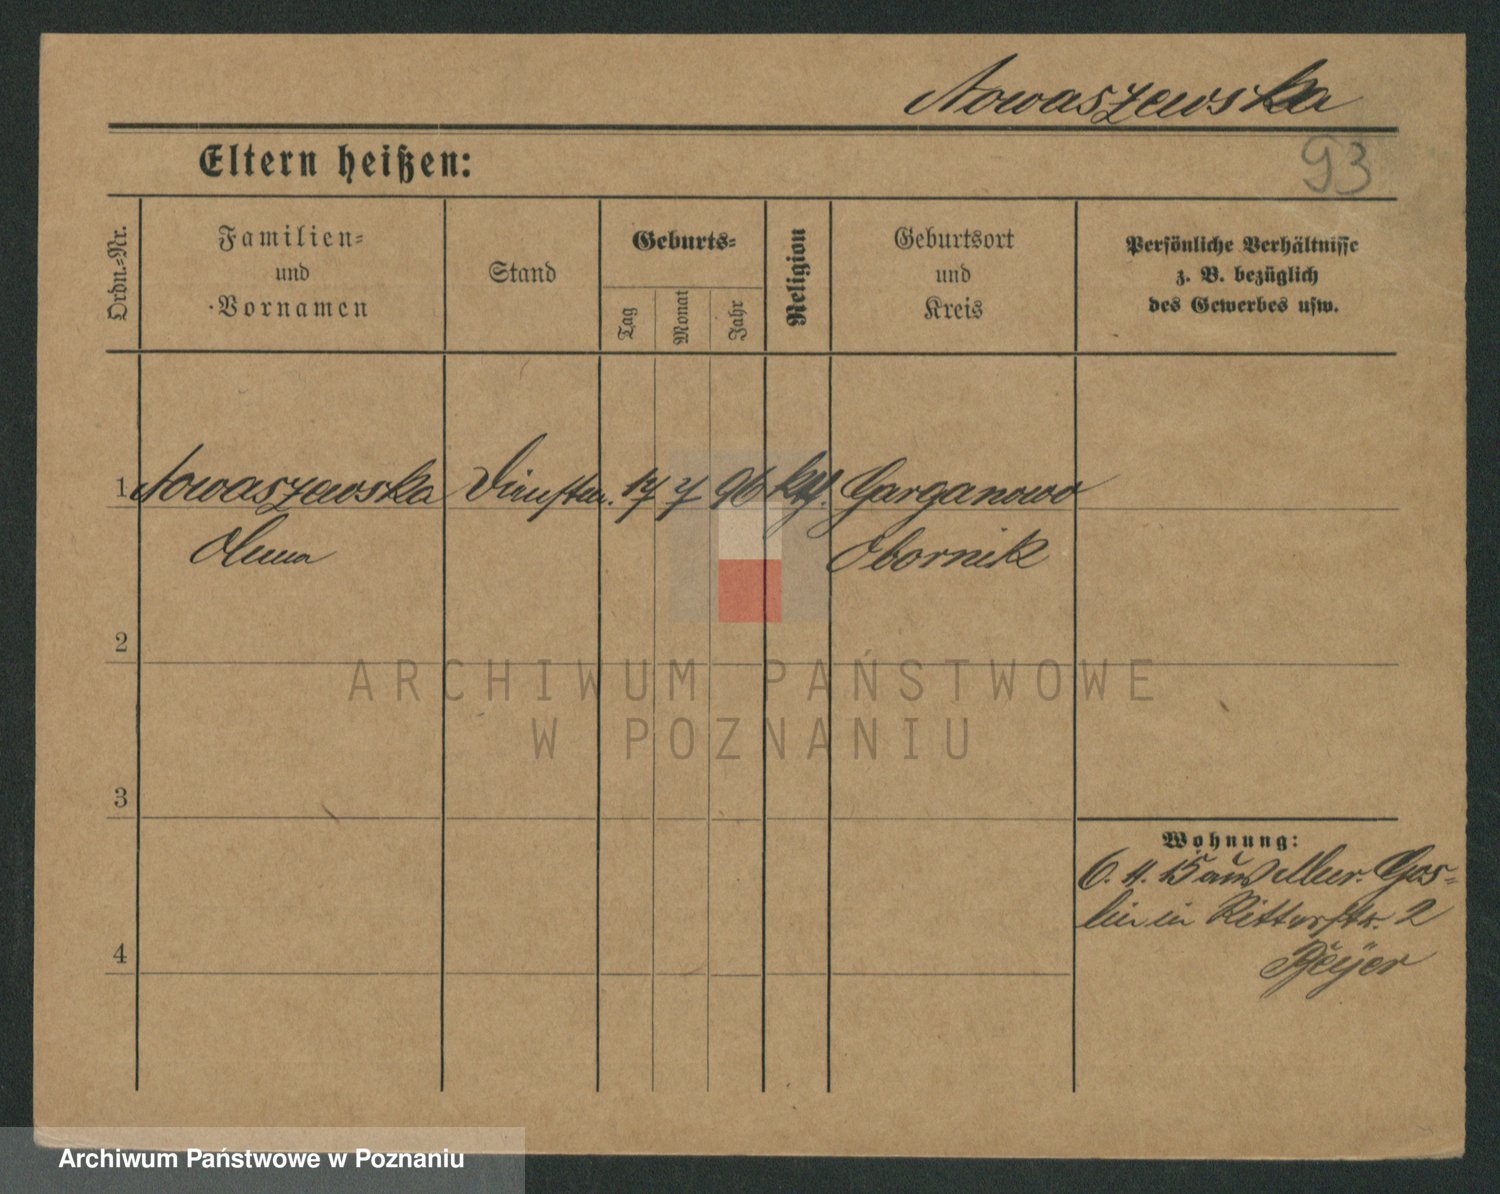 Nowaszewska
93
Eltern heißen:
Ordn.-Nr.
Familien-
und
Vornamen
Stand
Geburts-
Tag
Monat
Jahr
Religion
Geburtsort
und
Kreis
Persönliche Verhältnisse
z. B. bezüglich
des Gewerbes usw.
1 Nowaszewska Dienstm. 17 7 96 kth. Garganowo
Obornik
2
ARCHIWUM PAŃSTWOWE
W POZNANIU
3
Wohnung:
6. 4. 15 aus Mur. Gos-
lin in Ritterstr. 2
4
Archiwum Państwowe w Poznaniu